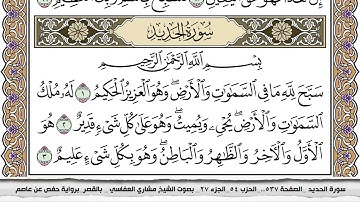 إِنَّ هَٰذَا لَهُوَ حَقُّ ٱلْيَقِينِ
سُورَةُ الحَدِيدِ
بِسْمِ ٱللَّهِ ٱلرَّحْمَٰنِ ٱلرَّحِيمِ
سَبَّحَ لِلَّهِ مَا فِي ٱلسَّمَٰوَٰتِ وَٱلْأَرْضِ ۖ وَهُوَ ٱلْعَزِيزُ ٱلْحَكِيمُ ١ لَهُۥ مُلْكُ
ٱلسَّمَٰوَٰتِ وَٱلْأَرْضِ ۖ يُحْىِۦ وَيُمِيتُ ۖ وَهُوَ عَلَىٰ كُلِّ شَىْءٍ قَدِيرٌ ٢ هُوَ
ٱلْأَوَّلُ وَٱلْأَخِرُ وَٱلظَّٰهِرُ وَٱلْبَاطِنُ ۖ وَهُوَ بِكُلِّ شَىْءٍ عَلِيمٌ ٣
سورة الحديد .. الصفحة ٥٣٧.. الحزب ٥٤ .. الجزء ٢٧ .. بصوت الشيخ مشاري العفاسي .. بالقصر برواية حفص عن عاصم